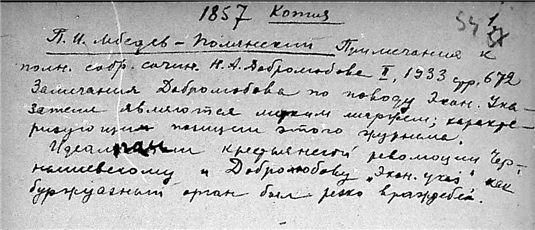 1857 Копия
54 1
П. И. Лебедев-Полянский Примечания к
полн. собр. сочин. Н. А. Добролюбова II, 1933 стр. 672
Замечания Добролюбова по поводу Экон. Ука-
зателя являются мелким штрихом, характе-
ризующим позиции этого журнала.
крестьянской революции Чер-
нышевскому и Добролюбову "Экон. указ" как
буржуазный орган был резко враждебен.